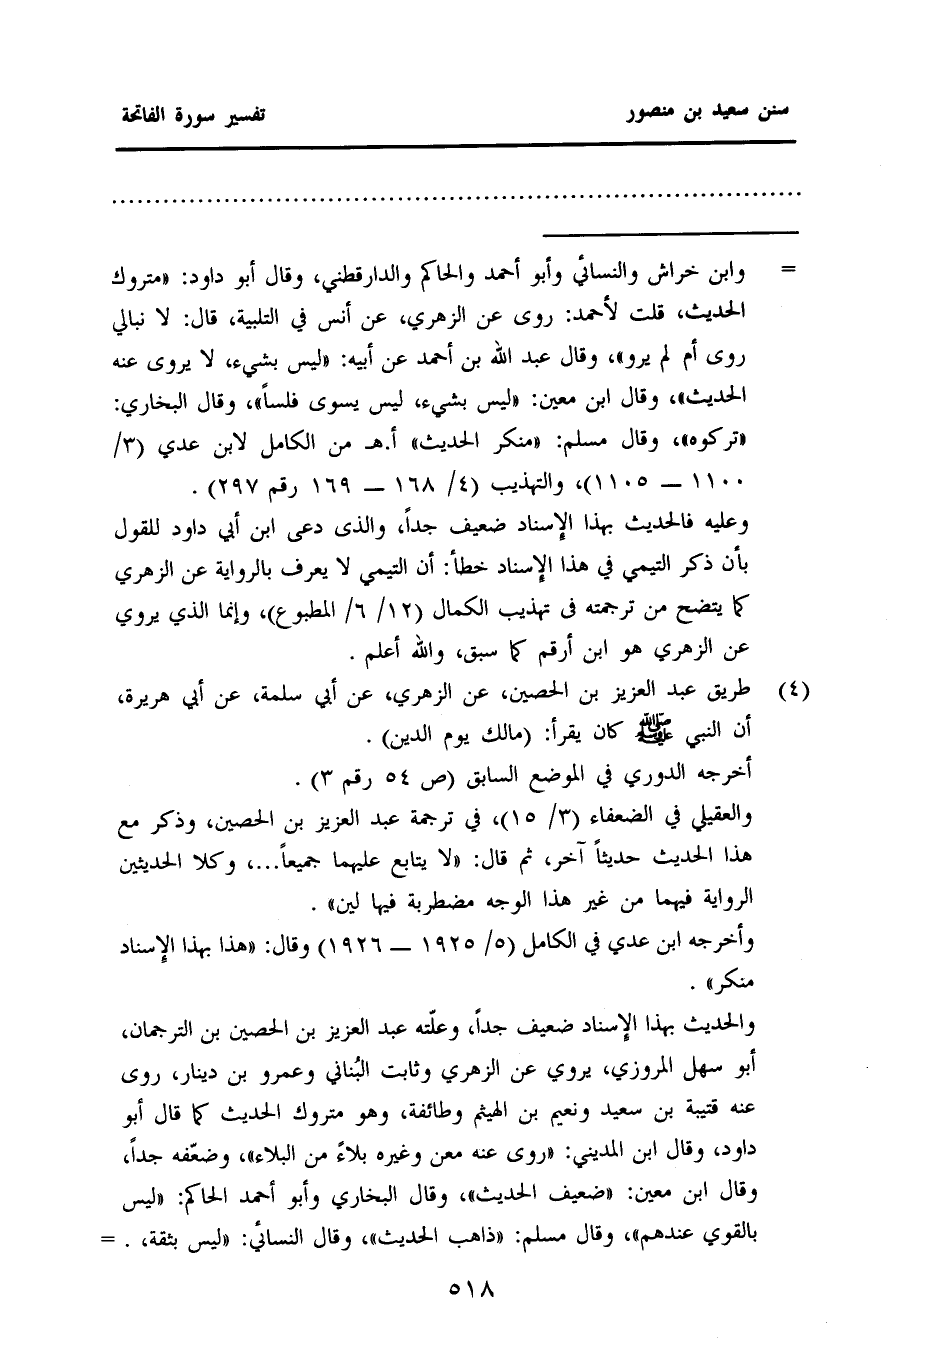 سنن سعيد بن منصور تفسير سورة الفاتحة
................................................................................
= وابن خراش والنسائي وأبو أحمد والحاكم والدارقطني، وقال أبو داود: «متروك
الحديث، قلت لأحمد: روى عن الزهري، عن أنس في التلبية، قال: لا نبالي
روى أم لم يرو»، وقال عبد الله بن أحمد عن أبيه: «ليس بشيء، لا يروى عنه
الحديث»، وقال ابن معين: «ليس بشيء، ليس يسوى فلساً»، وقال البخاري:
«تركوه»، وقال مسلم: «منكر الحديث» أ.هـ من الكامل لابن عدي (٣/
١١٠٠ ــ ١١٠٥)، والتهذيب (٤/ ١٦٨ ــ ١٦٩ رقم ٢٩٧) .
وعليه فالحديث بهذا الإسناد ضعيف جداً، والذى دعى ابن أبي داود للقول
بأن ذكر التيمي في هذا الإسناد خطأ: أن التيمي لا يعرف بالرواية عن الزهري
كما يتضح من ترجمته فى تهذيب الكمال (١٢/ ٦/ المطبوع)، وإنما الذي يروي
عن الزهري هو ابن أرقم كما سبق، والله أعلم .
(٤) طريق عبد العزيز بن الحصين، عن الزهري، عن أبي سلمة، عن أبي هريرة،
أن النبي ﷺ كان يقرأ: (مالك يوم الدين) .
أخرجه الدوري في الموضع السابق (ص ٥٤ رقم ٣) .
والعقيلي في الضعفاء (٣/ ١٥)، في ترجمة عبد العزيز بن الحصين، وذكر مع
هذا الحديث حديثاً آخر، ثم قال: «لا يتابع عليهما جميعاً...، وكلا الحديثين
الرواية فيهما من غير هذا الوجه مضطربة فيها لين» .
وأخرجه ابن عدي في الكامل (٥/ ١٩٢٥ ــ ١٩٢٦) وقال: «هذا بهذا الإسناد
منكر» .
والحديث بهذا الإسناد ضعيف جداً، وعلّته عبد العزيز بن الحصين بن الترجمان،
أبو سهل المروزي، يروي عن الزهري وثابت البُناني وعمرو بن دينار، روى
عنه قتيبة بن سعيد ونعيم بن الهيثم وطائفة، وهو متروك الحديث كما قال أبو
داود، وقال ابن المديني: «روى عنه معن وغيره بلاءً من البلاء»، وضعّفه جداً،
وقال ابن معين: «ضعيف الحديث»، وقال البخاري وأبو أحمد الحاكم: «ليس
بالقوي عندهم»، وقال مسلم: «ذاهب الحديث»، وقال النسائي: «ليس بثقة، . =
٥١٨